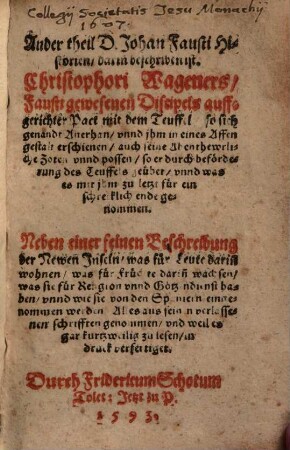 Collegij Societatis Jesu Monachij
1607.
Ander theil D. Johan Fausti Hi-
storien/ darin beschriben ist.
Christophori Wageners/
Fausti gewesenen Discipels auff-
gerichter Pact mit dem Teuffel so sich
genandt Auerhan/ vnnd jhm in eines Affen
gestalt erschienen/ auch seine Abenthewrli-
che Zoten vnnd possen/ so er durch beförde-
rung des Teuffels geübet/ vnnd was
es mit jhm zu letzt für ein
schrecklich ende ge-
nommen.
Neben einer feinen Beschreibung
der Newen Inseln/ was für Leute darin
wohnen/ was für Früchte darin wachsen/
was sie für Religion vnnd Götzendienst ha-
ben/ vnnd wie sie von den Spaniern einge-
nommen werden Alles aus seinen verlasse-
nen schrifften genommen/ vnd weil es
gar kurtzweilig zu lesen/ in
druck verfertiget.
Durch Fridericum Schotum
Tolet: Jetzt zu P.
1593.